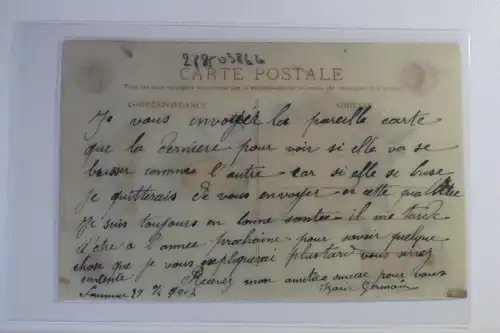 CARTE POSTALE
CORRESPONDANCE
Je vous envoyer la pareille carte
que la derniere pour voir si elle va se
baisser comme l'autre car si elle se
Je quitterais de vous envoyer en cette qualitee
Je suis toujours en bonne santee il me tarde
d'être a l'année prochaine pour savoir quelque
chose que je vous expliquerai plustard vous serez
contente Recevez mon amitiee sincère pour vous
Germain